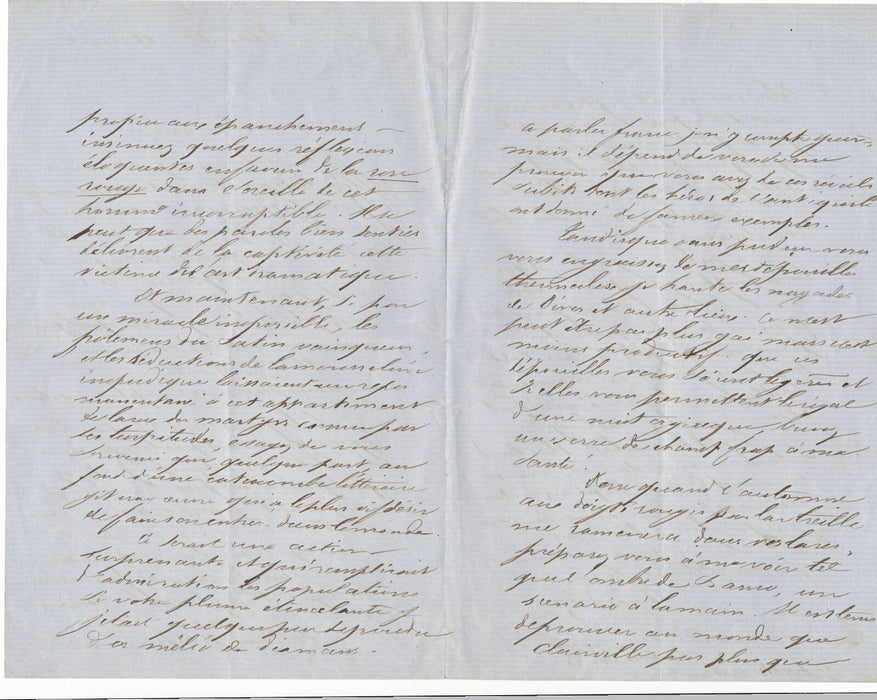 propice aux épanchements
insinuez quelques réflexions
éloquentes en faveur de la rose
rouge dans l'oreille de cet
homme incorruptible. Il se
peut que des paroles bien senties
délivrent de la captivité cette
victime de l'art dramatique.
Et maintenant, si par
un miracle impossible les
du Satin vainqueur,
et les séductions de la mousseline
impudique laissaient un repos
momentané à cet appartement
de la rue des martyrs connu par
ses turpitudes, essayez de vous
souvenir que, quelque part, au
fond d'une catacombe littéraire
gît une œuvre qui a le plus vif désir
de faire son entrée dans le monde.
Il serait une action
surprenante et qui remplirait
d'admiration les populations
si votre plume étincelante y
jetait quelque peu de poudre
d'or mêlée de diamant.
a parler franc je n'y compte guère
mais il dépend de vous de me
prouver que vous avez de ces réveils
subits dont les héros de l'antiquité
ont donné de fameux exemples.
Tandis que sans pudeur vous
vous engraissez de mes dépouilles
thermales, je hante les nayades
de Dives et autres lieux. Ce n'est
peut être pas plus gai mais c'est
moins productif. que ces
dépouilles vous soient légères et
si elles vous permettent le régal
d'une nuit orgiaque, buvez
un verre de champ frap à ma
santé!
quand l'automne
aux doigts rougis par la treille
me ramènera dans vos lares,
préparez vous à me voir tel
que l'ombre de, un
scenario à la main. Il est tems
de prouver au monde que
Clairville pas plus que